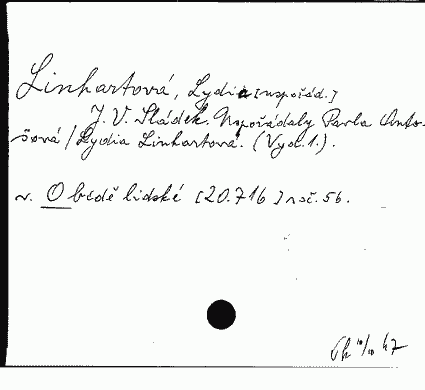 Linhartová, Lydia [uspořád.]
J. V. Sládek. Uspořádaly Pavla Anto-
šová / Lydia Linhartová. (Vyd. 1.).
v. O bídě lidské [20.716] roč. 56.
47